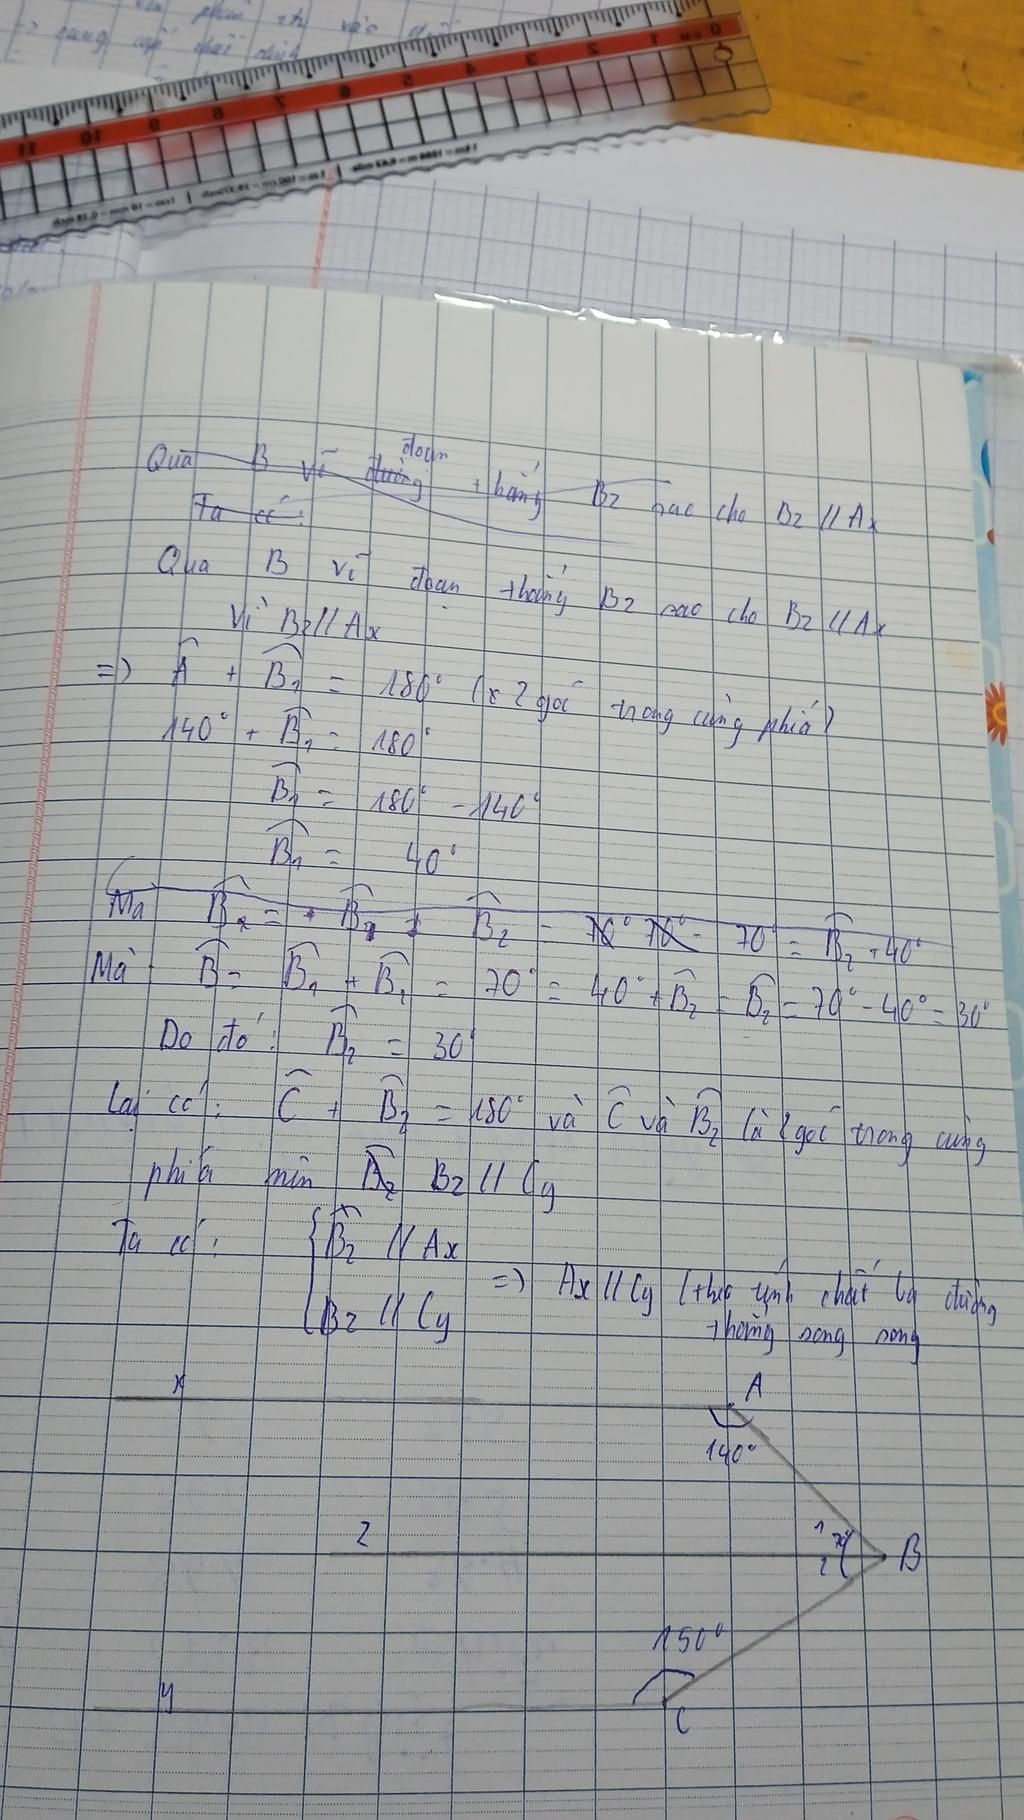 0 cm 1 2 3 4 5 6 7 8 9 10 11
Qua B vẽ đường thẳng Bz sao cho Bz // Ax
đoạn
Ta có:
Qua B vẽ đoạn thẳng Bz sao cho Bz // Ax
Vì Bz // Ax
=> Â + B̂1 = 180° (x 2 góc trong cùng phía)
140° + B̂1 = 180°
B̂1 = 180° - 140°
B̂1 = 40°
Mà B̂ = B̂1 + B̂2 = 70° 70° = 70° = B̂2 + 40°
Mà B̂ = B̂1 + B̂1 = 70° = 40° + B̂2 = B̂2 = 70° - 40° = 30°
Do đó: B̂2 = 30°
Lại có: Ĉ + B̂2 = 180° và Ĉ và B̂2 là 2 góc trong cùng
phía nên B̂2 Bz // Cy
Ta có: { Bz // Ax
=> Ax // Cy (theo tính chất ba đường
Bz // Cy
thẳng song song
x
A
140°
z
1
2
B
150°
y
C